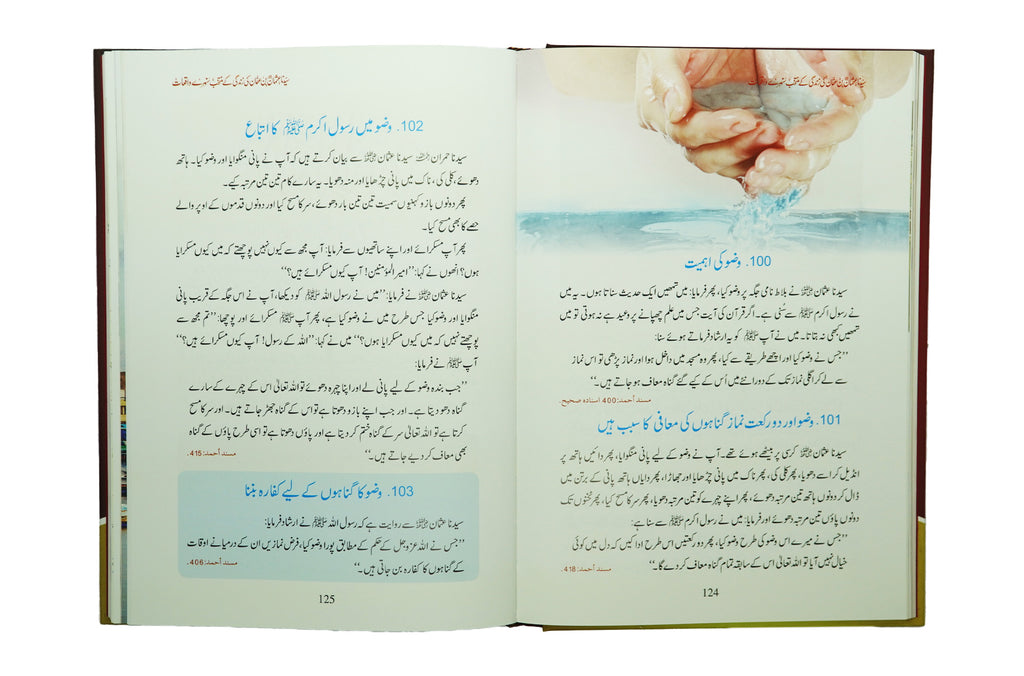 سیدنا عثمان بن عفان کی زندگی کے منتخب سنہرے واقعات
100. وضو کی اہمیت
سیدنا عثمان رضی اللہ عنہ نے بلاط نامی جگہ پر وضو کیا، پھر فرمایا: میں تمھیں ایک حدیث سناتا ہوں۔ یہ میں
نے رسول اکرم ﷺ سے سُنی ہے۔ اگر قرآن کی آیت جس میں علم چھپانے پر وعید ہے نہ ہوتی تو میں
تمھیں کبھی نہ بتاتا۔ میں نے آپ ﷺ کو یہ ارشاد فرماتے ہوئے سنا:
’’جس نے وضو کیا اور اچھے طریقے سے کیا، پھر وہ مسجد میں داخل ہوا اور نماز پڑھی تو اس نماز
سے لے کر اگلی نماز تک کے دورانیے میں اُس کے کیے گئے گناہ معاف ہو جاتے ہیں۔‘‘
مسند أحمد: 400 اسنادہ صحیح.
101. وضو اور دو رکعت نماز گناہوں کی معافی کا سبب ہیں
سیدنا عثمان رضی اللہ عنہ کرسی پر بیٹھے ہوئے تھے۔ آپ نے وضو کے لیے پانی منگوایا، پھر دائیں ہاتھ پر
انڈیل کر اسے دھویا، پھر کلی کی، پھر ناک میں پانی چڑھایا اور جھاڑا، پھر دایاں ہاتھ پانی کے برتن میں
ڈال کر دونوں ہاتھ تین مرتبہ دھوئے، پھر اپنے چہرے کو تین مرتبہ دھویا، پھر سر کا مسح کیا، پھر ٹخنوں تک
دونوں پاؤں تین مرتبہ دھوئے اور فرمایا: میں نے رسول اکرم ﷺ سے سنا ہے:
’’جس نے میرے اس وضو کی طرح وضو کیا، پھر دو رکعتیں اس طرح ادا کیں کہ دل میں کوئی
خیال نہیں آیا تو اللہ تعالیٰ اس کے سابقہ تمام گناہ معاف کر دے گا۔‘‘
مسند أحمد: 418.
124
سیدنا عثمان بن عفان کی زندگی کے منتخب سنہرے واقعات
102. وضو میں رسول اکرم ﷺ کا اتباع
سیدنا حمران رحمہ اللہ سیدنا عثمان رضی اللہ عنہ سے بیان کرتے ہیں کہ آپ نے پانی منگوایا اور وضو کیا۔ ہاتھ
دھوئے، کلی کی، ناک میں پانی چڑھایا اور منہ دھویا۔ یہ سارے کام تین تین مرتبہ کیے۔
پھر دونوں بازو کہنیوں سمیت تین تین بار دھوئے، سر کا مسح کیا اور دونوں قدموں کے اوپر والے
حصے کا بھی مسح کیا۔
پھر آپ مسکرائے اور اپنے ساتھیوں سے فرمایا: آپ مجھ سے کیوں نہیں پوچھتے کہ میں کیوں مسکرایا
ہوں؟ انھوں نے کہا: ’’امیر المؤمنین! آپ کیوں مسکرائے ہیں؟‘‘
سیدنا عثمان رضی اللہ عنہ نے فرمایا: ’’میں نے رسول اللہ ﷺ کو دیکھا، آپ نے اس جگہ کے قریب پانی
منگوایا اور وضو کیا جس طرح میں نے وضو کیا ہے، پھر آپ ﷺ مسکرائے اور پوچھا: ’’تم مجھ سے
پوچھتے نہیں کہ میں کیوں مسکرایا ہوں؟‘‘ میں نے کہا: ’’اللہ کے رسول! آپ کیوں مسکرائے ہیں؟‘‘
آپ ﷺ نے فرمایا:
’’جب بندہ وضو کے لیے پانی لے اور اپنا چہرہ دھوئے تو اللہ تعالیٰ اس کے چہرے کے سارے
گناہ دھو دیتا ہے۔ اور جب اپنے بازو دھوتا ہے تو اس کے گناہ جھڑ جاتے ہیں۔ اور سر کا مسح
کرتا ہے تو اللہ تعالیٰ سر کے گناہ ختم کر دیتا ہے اور پاؤں دھوتا ہے تو اسی طرح پاؤں کے گناہ
بھی معاف کر دیے جاتے ہیں۔‘‘
مسند أحمد: 415.
103. وضو کا گناہوں کے لیے کفارہ بننا
سیدنا عثمان رضی اللہ عنہ سے روایت ہے کہ رسول اللہ ﷺ نے ارشاد فرمایا:
’’جس نے اللہ عزوجل کے حکم کے مطابق پورا وضو کیا، فرض نمازیں ان کے درمیانے اوقات
کے گناہوں کا کفارہ بن جاتی ہیں۔‘‘
مسند أحمد: 406.
125